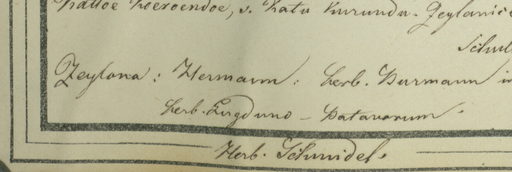 Kattoe Keeroendoe, s. Katu Kurundu. Zeylanice
Zeylona: Hermann: herb. Burmann in
herb. Lugduno - Batavorum.
Herb. Schmidel.